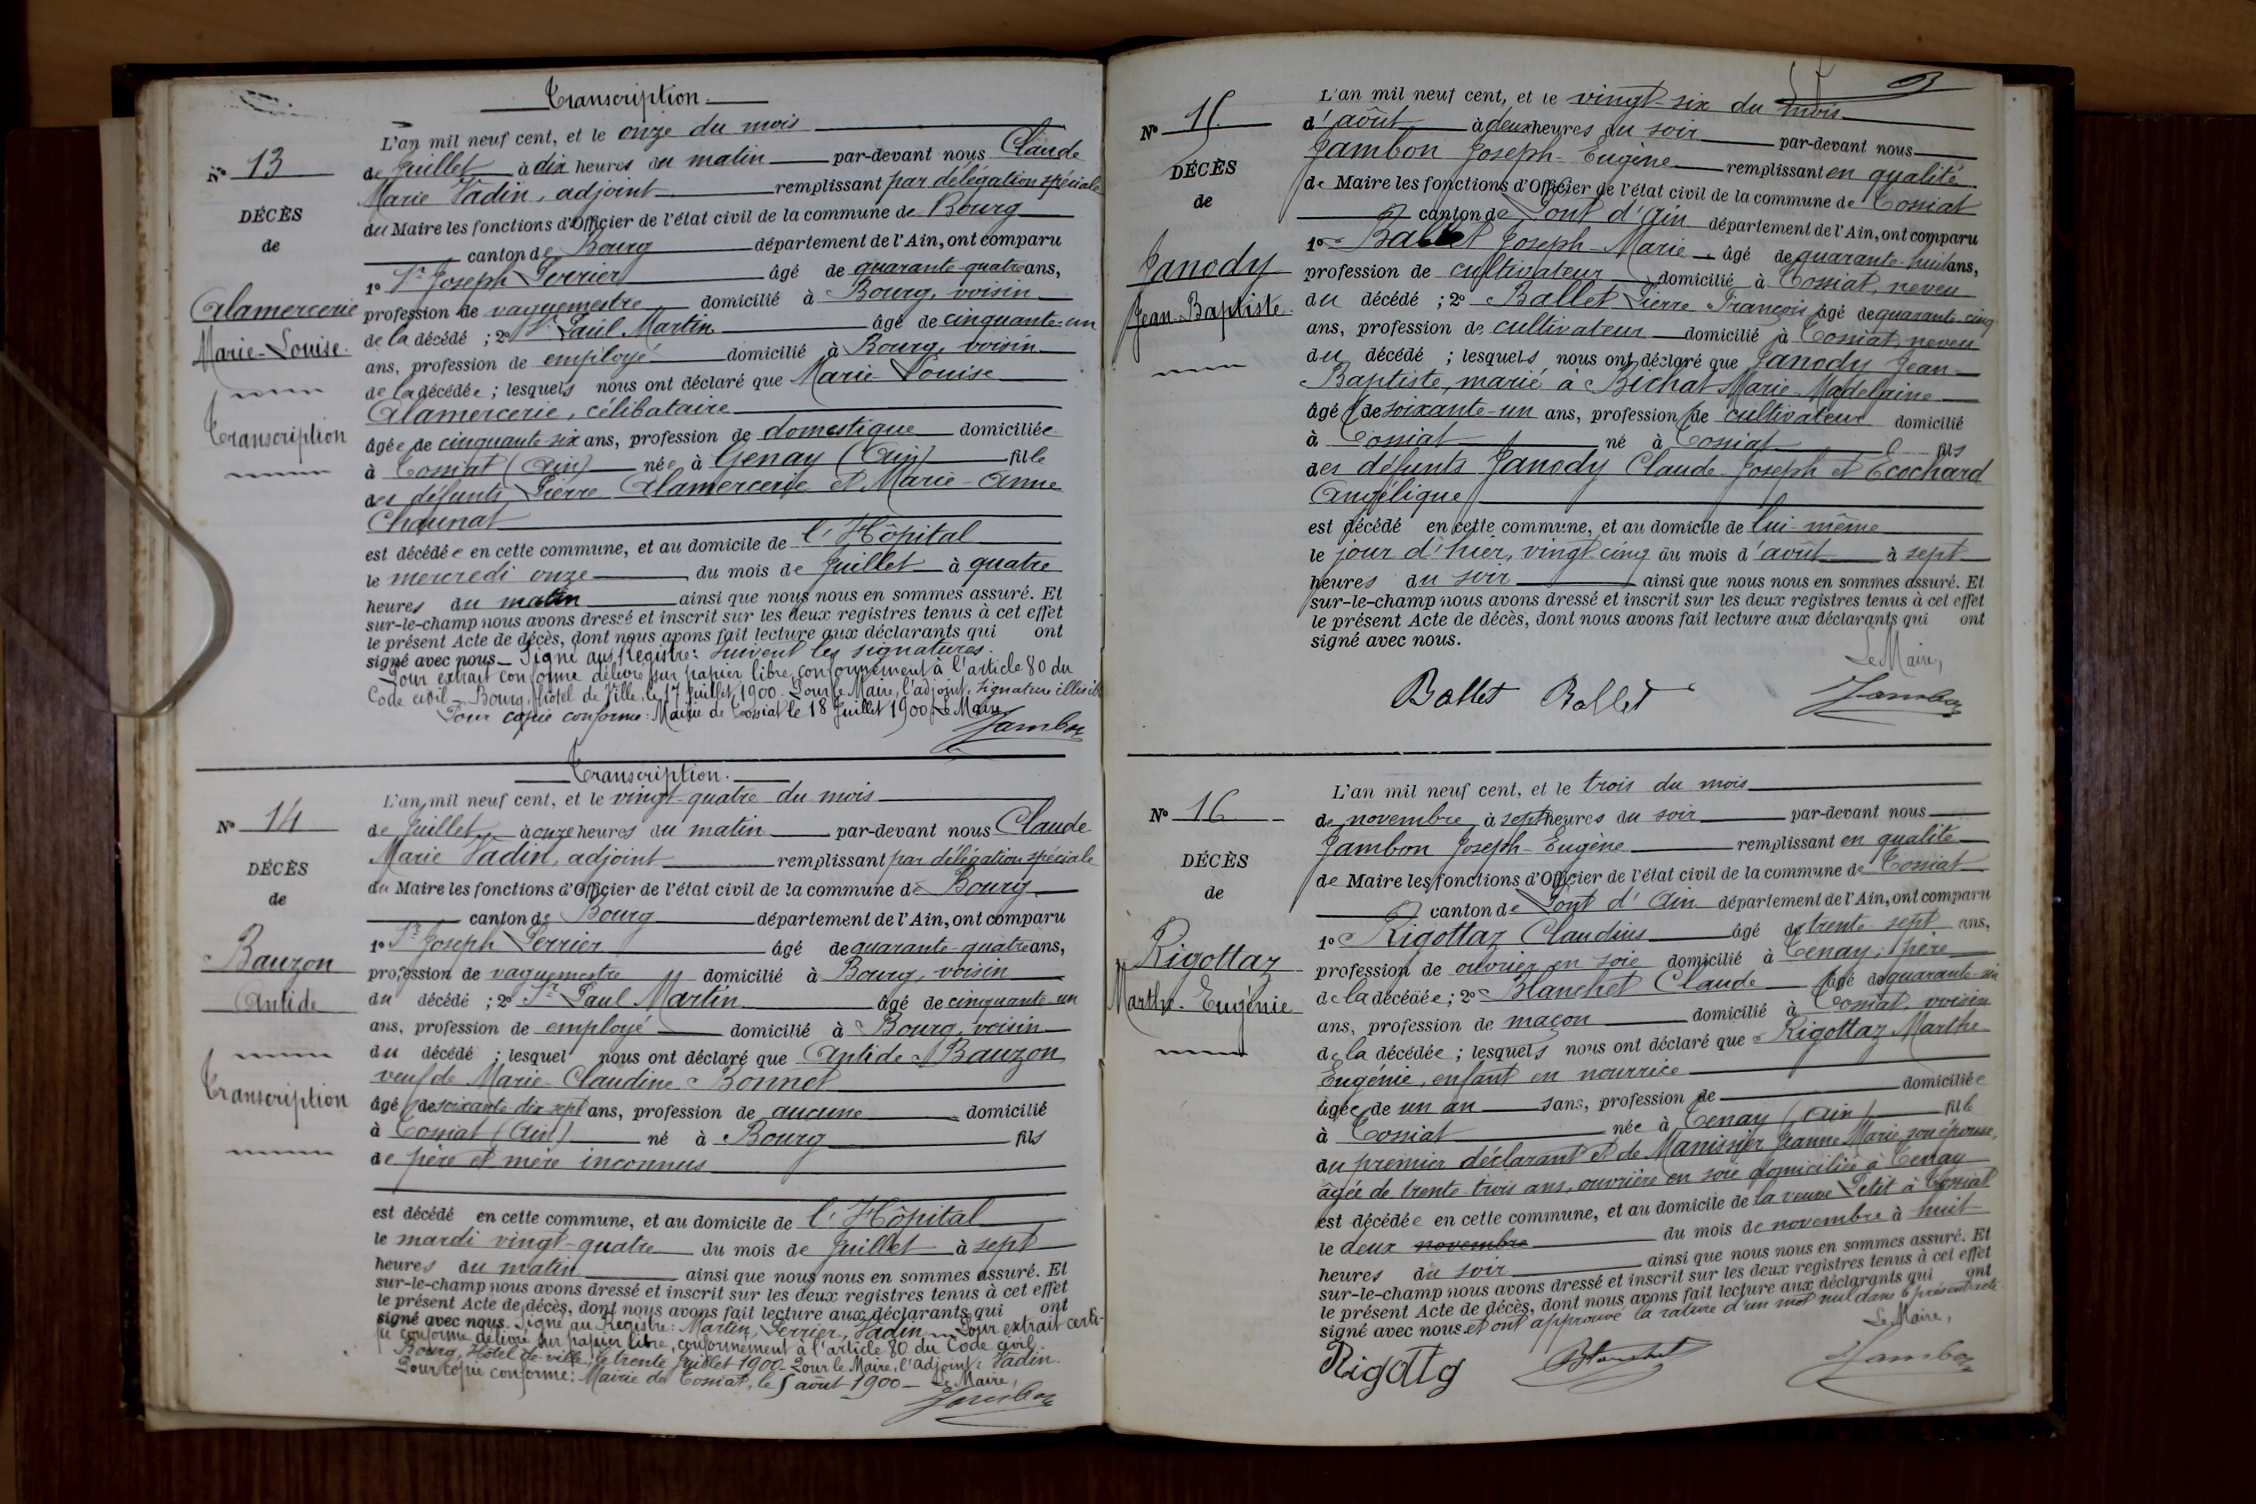 Transcription
N° 13
DÉCÈS
de
Alamercerie
Marie-Louise.
Transcription
L'an mil neuf cent, et le onze du mois
de Juillet à dix heures du matin par-devant nous Claude
Marie Vadin, adjoint remplissant par délégation spéciale
du Maire les fonctions d'Officier de l'état civil de la commune de Bourg
canton de Bourg département de l'Ain, ont comparu
1° Sr Joseph Perrier âgé de quarante-quatre ans,
profession de vaguemestre domicilié à Bourg, voisin
de la décédé ; 2° Sr Paul Martin âgé de cinquante-un
ans, profession de employé domicilié à Bourg, voisin
de la décédée ; lesquels nous ont déclaré que Marie-Louise
Alamercerie, célibataire
âgée de cinquante-six ans, profession de domestique domiciliée
à Tossiat (Ain) née à Genay (Ain) fille
des défunts Pierre Alamercerie et Marie-Anne
Chaunat
est décédée en cette commune, et au domicile de l'Hôpital
le mercredi onze du mois de Juillet à quatre
heures du matin ainsi que nous nous en sommes assuré. Et
sur-le-champ nous avons dressé et inscrit sur les deux registres tenus à cet effet
le présent Acte de décès, dont nous avons fait lecture aux déclarants qui ont
signé avec nous. Signé au Registre: suivent les signatures.
Pour extrait conforme délivré sur papier libre, conformément à l'article 80 du
Code civil - Bourg, Hôtel de Ville, le 17 Juillet 1900. Pour le Maire, l'adjoint, signature illisible
Pour copie conforme: Mairie de Tossiat le 18 Juillet 1900, Le Maire
Jambon
Transcription.
N° 14
DÉCÈS
de
Bauzon
Antide
Transcription
L'an mil neuf cent, et le vingt-quatre du mois
de Juillet à onze heures du matin par-devant nous Claude
Marie Vadin, adjoint remplissant par délégation spéciale
du Maire les fonctions d'Officier de l'état civil de la commune de Bourg
canton de Bourg département de l'Ain, ont comparu
1° Sr Joseph Perrier âgé de quarante-quatre ans,
profession de vaguemestre domicilié à Bourg, voisin
du décédé ; 2° Sr Paul Martin âgé de cinquante-un
ans, profession de employé domicilié à Bourg, voisin
du décédé ; lesquel nous ont déclaré que Antide Bauzon
veuf de Marie-Claudine Bonnet
âgé de soixante dix sept ans, profession de aucune domicilié
à Tossiat (Ain) né à Bourg fils
de père et mère inconnus
est décédé en cette commune, et au domicile de l'Hôpital
le mardi vingt-quatre du mois de Juillet à sept
heures du matin ainsi que nous nous en sommes assuré. Et
sur-le-champ nous avons dressé et inscrit sur les deux registres tenus à cet effet
le présent Acte de décès, dont nous avons fait lecture aux déclarants qui ont
signé avec nous. Signé au Registre: Martin, Perrier, Vadin. Pour extrait certi-
fié conforme délivré sur papier libre, conformément à l'article 80 du Code civil.
Bourg, Hôtel de ville, le trente Juillet 1900. Pour le Maire, l'adjoint: Vadin.
Pour copie conforme: Mairie de Tossiat, le 5 août 1900 - Le Maire,
Jambon
N° 15.
DÉCÈS
de
Janody
Jean-Baptiste.
L'an mil neuf cent, et le vingt-six du mois
d'août à deux heures du soir par-devant nous
Jambon Joseph-Eugène remplissant en qualité
de Maire les fonctions d'Officier de l'état civil de la commune de Tossiat
canton de Pont d'Ain département de l'Ain, ont comparu
1° Ballet Joseph-Marie âgé de quarante-huit ans,
profession de cultivateur domicilié à Tossiat, neveu
du décédé ; 2° Ballet Pierre-François âgé de quarante-cinq
ans, profession de cultivateur domicilié à Tossiat, neveu
du décédé ; lesquels nous ont déclaré que Janody Jean-
Baptiste, marié à Bichat Marie-Madelaine
âgé de soixante-un ans, profession de cultivateur domicilié
à Tossiat né à Tossiat fils
des défunts Janody Claude-Joseph et Ecochard
Angélique
est décédé en cette commune, et au domicile de lui-même
le jour d'hier, vingt cinq du mois d'août à sept
heures du soir ainsi que nous nous en sommes assuré. Et
sur-le-champ nous avons dressé et inscrit sur les deux registres tenus à cet effet
le présent Acte de décès, dont nous avons fait lecture aux déclarants qui ont
signé avec nous.
Le Maire,
Ballet Ballet Jambon
N° 16
DÉCÈS
de
Rigottaz
Marthe-Eugénie
L'an mil neuf cent, et le trois du mois
de novembre à sept heures du soir par-devant nous
Jambon Joseph-Eugène remplissant en qualité
de Maire les fonctions d'Officier de l'état civil de la commune de Tossiat
canton de Pont d'Ain département de l'Ain, ont comparu
1° Rigottaz Claudius âgé de trente sept ans,
profession de ouvrier en soie domicilié à Tenay, père
de la décédée ; 2° Blanchet Claude âgé de quarante-six
ans, profession de maçon domicilié à Tossiat, voisin
de la décédée ; lesquels nous ont déclaré que Rigottaz Marthe
Eugénie, enfant en nourrice
âgée de un an sans, profession de domiciliée
à Tossiat née à Tenay (Ain) fille
du premier déclarant et de Manissier Jeanne Marie, son épouse,
âgée de trente-trois ans, ouvrière en soie domiciliée à Tenay
est décédée en cette commune, et au domicile de la veuve Petit à Tossiat
le deux novembre du mois de novembre à huit
heures du soir ainsi que nous nous en sommes assuré. Et
sur-le-champ nous avons dressé et inscrit sur les deux registres tenus à cet effet
le présent Acte de décès, dont nous avons fait lecture aux déclarants qui ont
signé avec nous et ont approuvé la rature d'un mot nul dans le présent acte
Le Maire,
Rigottg Blanchet Jambon